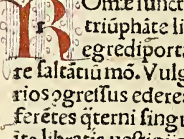 R Omẽ funct
triũphãte li
egrediport
re ſaltãtiũ mõ. Vulg
rios ꝓgreſſus edere
ferẽtes q̃terni ſingu